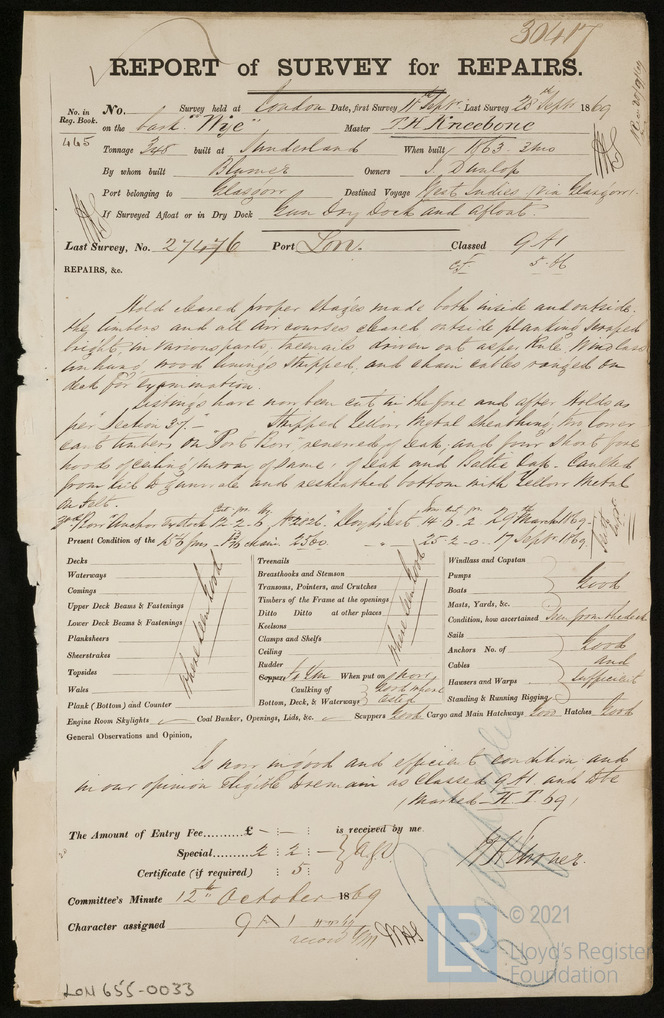 30417
REPORT of SURVEY for REPAIRS.
No. in Reg. Book.
465
No. Survey held at London Date, first Survey Last Survey 25th Sept 1869
on the bark "Wye" Master T H Kneebone
Tonnage 348 built at Sunderland When built 1863. 3mo
By whom built Blumer Owners Dunlop
Port belonging to Glasgow Destined Voyage West Indies via Glasgow.
If Surveyed Afloat or in Dry Dock Gun Dry Dock and afloat.
Last Survey, No. 27476 Port Lon. Classed 9A1
REPAIRS, &c.
Hold cleared proper stages made both inside and outside.
the timbers and all air courses cleared outside planking scraped
bright, in various parts, treenails driven out as per Rule, Windlass
unhung, wood linings stripped, and chain cables ranged on
deck for examination.
Listings have now been cut in the fore and after Holds as
per "Section 37." – Stripped Yellow Metal sheathing, two lower
cant timbers on "Port Bow" renewed of teak, and four short fore
hoods of ceiling in way of same, of teak and Baltic Caulked
from to Gunwale and resheathed bottom with Yellow Metal
on felt.
"Bow" Anchor 12-2-6 "Lloyds test 14-0-2 29th March 1869
Present Condition of the chain 25-2-0 17 Septr 1869
Decks
Waterways
Comings
Upper Deck Beams & Fastenings
Lower Deck Beams & Fastenings
Planksheers
Sheerstrakes
Topsides
Wales
Plank (Bottom) and Counter
Where seen Good
Treenails
Breasthooks and Stemson
Transoms, Pointers, and Crutches
Timbers of the Frame at the openings
Ditto Ditto at other places
Keelsons
Clamps and Shelfs
Ceiling
Rudder
Copper When put on now
Caulking of Bottom, Deck, & Waterways Good where tested
Where seen Good
Windlass and Capstan
Pumps
Boats
Masts, Yards, &c.
Good
Condition, how ascertained Seen from the deck
Sails
Anchors No. of
Cables
Hawsers and Warps
Standing & Running Rigging
Good and sufficient
Engine Room Skylights Coal Bunker, Openings, Lids, &c. Scuppers Good Cargo and Main Hatchways Good Hatches Good
General Observations and Opinion,
Is now in good and efficient condition and
in our opinion Eligible to remain as Classed 9A1 and to be
(Marked H.T. 69)
The Amount of Entry Fee.......... £ - : - : is received by me
Special.......... 2 : 2 : -
Certificate (if required) : 5 :
Committee's Minute 12th October 1869
Character assigned 9A1
LON 655-0033
LR
© 2021
Lloyd's Register
Foundation